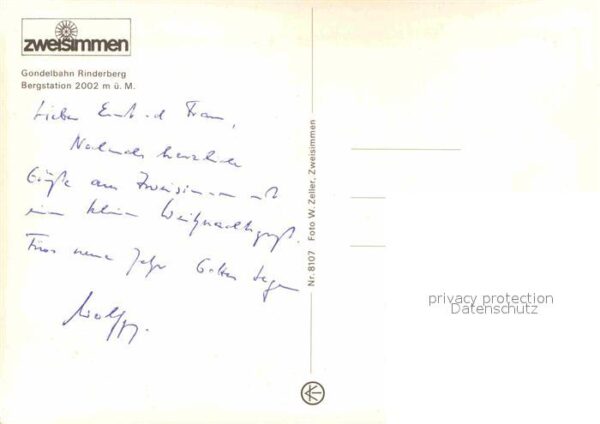 zweisimmen
Gondelbahn Rinderberg
Bergstation 2002 m ü. M.
Lieber Frau,
Nochmals herzliche
Grüße aus Zweisimmen mit
einem kleinen Weihnachtsgruß.
Fürs neue Jahr Gottes Segen
Nr. 8107 Foto W. Zeller, Zweisimmen
privacy protection
Datenschutz